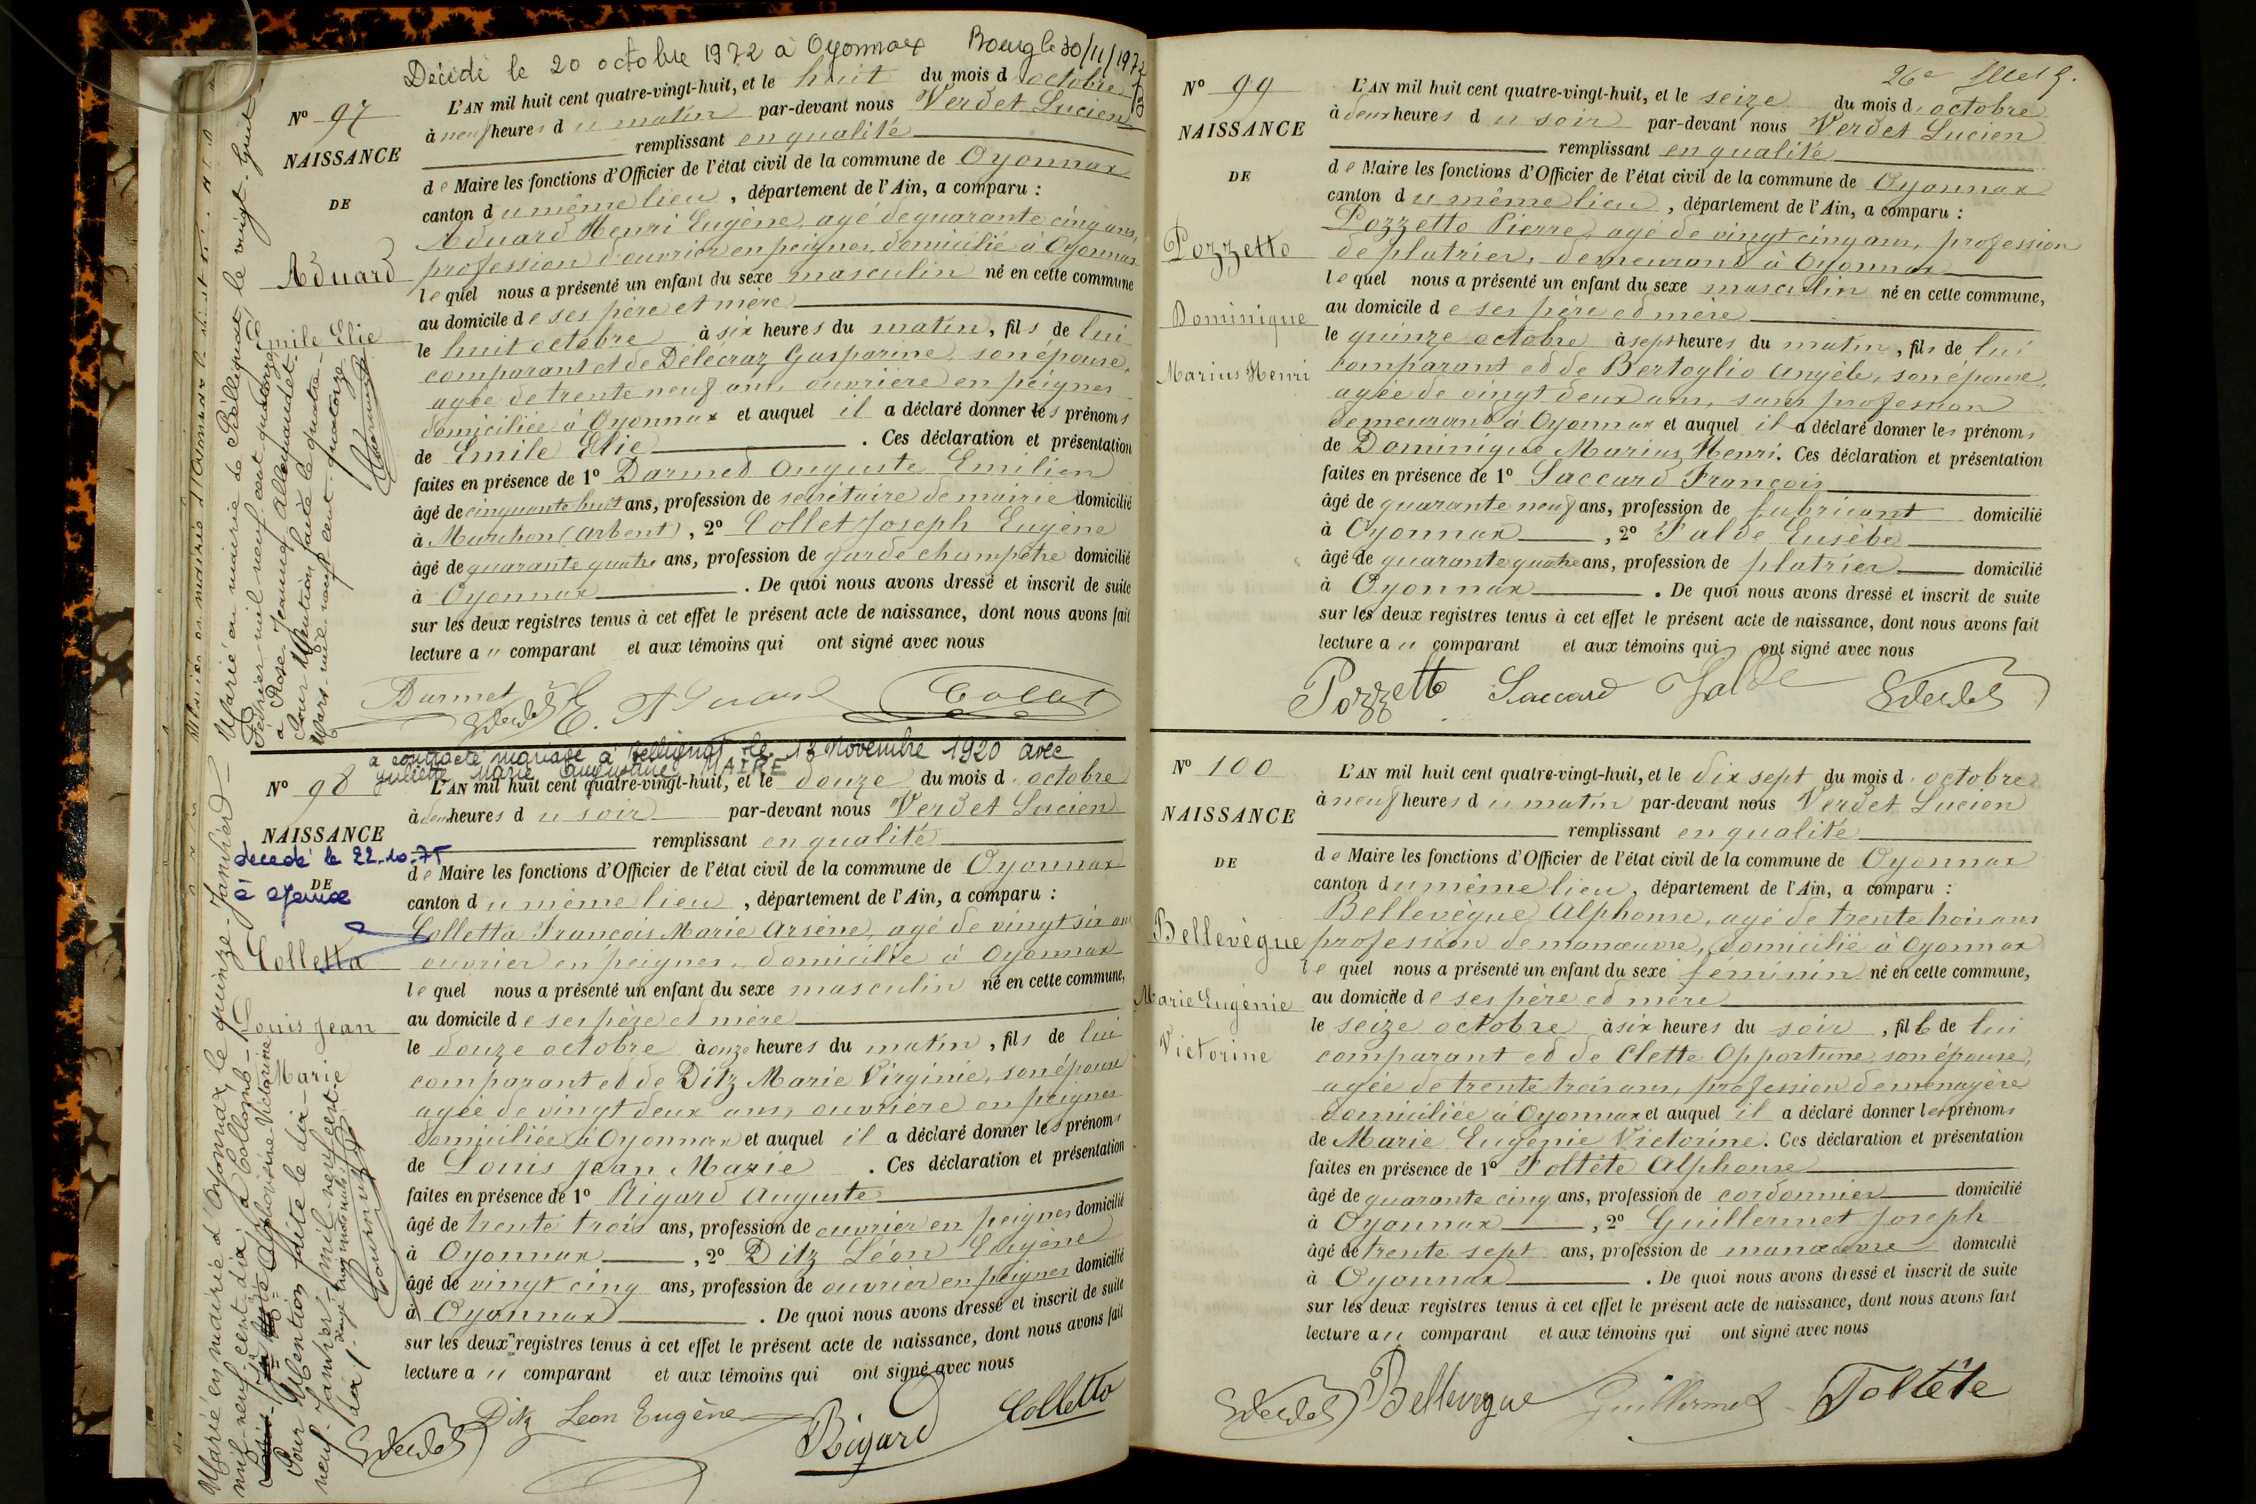 Décédé le 20 octobre 1972 à Oyonnax
N° 97
NAISSANCE
DE
Aduard
Emile Elie
L'AN mil huit cent quatre-vingt-huit, et le huit du mois d'octobre
à neuf heures du matin par-devant nous Verdet Lucien
remplissant en qualité
de Maire les fonctions d'Officier de l'état civil de la commune de Oyonnax
canton du même lieu, département de l'Ain, a comparu :
Aduard Henri Eugène, agé de quarante cinq ans,
profession d'ouvrier en peignes, domicilié à Oyonnax
lequel nous a présenté un enfant du sexe masculin né en cette commune
au domicile de ses père et mère
le huit octobre à six heures du matin, fils de lui
comparant et de Délécraz Gasparine, son épouse,
agée de trente neuf ans, ouvrière en peignes
domiciliée à Oyonnax et auquel il a déclaré donner les prénoms
de Emile Elie. Ces déclaration et présentation
faites en présence de 1° Darmed Auguste Emilien
âgé de cinquante huit ans, profession de secrétaire de mairie domicilié
à Marchon (Arbent), 2° Collet Joseph Eugène
âgé de quarante quatre ans, profession de garde champêtre domicilié
à Oyonnax. De quoi nous avons dressé et inscrit de suite
sur les deux registres tenus à cet effet le présent acte de naissance, dont nous avons fait
lecture au comparant et aux témoins qui ont signé avec nous
Marié en mairie de Bellignat le vingt-huit
Février mil neuf cent quatorze
à Rose Jeanne
Pour Mention faite le quatre
Mars mil neuf cent quatorze
a contracté mariage à Bellignat le 13 Novembre 1920 avec
Juliette Marie Augustine MAIRE
N° 98
NAISSANCE
décédé le 22.10.75
DE
Colletta
Louis Jean
Marie
L'AN mil huit cent quatre-vingt-huit, et le douze du mois d'octobre
à deux heures du soir par-devant nous Verdet Lucien
remplissant en qualité
de Maire les fonctions d'Officier de l'état civil de la commune de Oyonnax
canton du même lieu, département de l'Ain, a comparu :
Colletta François Marie Arsène, agé de vingt six ans
ouvrier en peignes, domicilié à Oyonnax
lequel nous a présenté un enfant du sexe masculin né en cette commune,
au domicile de ses père et mère
le douze octobre à onze heures du matin, fils de lui
comparant et de Ditz Marie Virginie, son épouse
agée de vingt deux ans, ouvrière en peignes
domiciliée à Oyonnax et auquel il a déclaré donner les prénoms
de Louis Jean Marie. Ces déclaration et présentation
faites en présence de 1° Rigard Auguste
âgé de trente trois ans, profession de ouvrier en peignes domicilié
à Oyonnax, 2° Ditz Léon Eugène
âgé de vingt cinq ans, profession de ouvrier en peignes domicilié
à Oyonnax. De quoi nous avons dressé et inscrit de suite
sur les deux registres tenus à cet effet le présent acte de naissance, dont nous avons fait
lecture au comparant et aux témoins qui ont signé avec nous
Ditz Léon Eugène
Rigard
Colletta
Marié en mairie d'Oyonnax le quinze Janvier
mil neuf cent dix, à Colland
Pour Mention faite le dix-
neuf Janvier mil neuf cent
dix
N° 99
NAISSANCE
DE
Pozzetto
Dominique
Marius Henri
L'AN mil huit cent quatre-vingt-huit, et le seize du mois d'octobre
à deux heures du soir par-devant nous Verdet Lucien
remplissant en qualité
de Maire les fonctions d'Officier de l'état civil de la commune de Oyonnax
canton du même lieu, département de l'Ain, a comparu :
Pozzetto Pierre, agé de vingt cinq ans, profession
de platrier, demeurant à Oyonnax
lequel nous a présenté un enfant du sexe masculin né en cette commune,
au domicile de ses père et mère
le quinze octobre à sept heures du matin, fils de lui
comparant et de Bertoglio Angèle, son épouse,
agée de vingt deux ans, sans profession
demeurant à Oyonnax et auquel il a déclaré donner les prénoms
de Dominique Marius Henri. Ces déclaration et présentation
faites en présence de 1° Saccard François
âgé de quarante neuf ans, profession de fabricant domicilié
à Oyonnax, 2° Falde Eusèbe
âgé de quarante quatre ans, profession de platrier domicilié
à Oyonnax. De quoi nous avons dressé et inscrit de suite
sur les deux registres tenus à cet effet le présent acte de naissance, dont nous avons fait
lecture au comparant et aux témoins qui ont signé avec nous
Pozzetto Saccard Falde
N° 100
NAISSANCE
DE
Bellevègue
Marie Eugénie
Victorine
L'AN mil huit cent quatre-vingt-huit, et le dix sept du mois d'octobre
à neuf heures du matin par-devant nous Verdet Lucien
remplissant en qualité
de Maire les fonctions d'Officier de l'état civil de la commune de Oyonnax
canton du même lieu, département de l'Ain, a comparu :
Bellevègue Alphonse, agé de trente trois ans
profession de manœuvre, domicilié à Oyonnax
lequel nous a présenté un enfant du sexe féminin né en cette commune,
au domicile de ses père et mère
le seize octobre à six heures du soir, fille de lui
comparant et de Clette Opportune, son épouse,
agée de trente trois ans, profession de ménagère
domiciliée à Oyonnax et auquel il a déclaré donner les prénoms
de Marie Eugénie Victorine. Ces déclaration et présentation
faites en présence de 1° Foltête Alphonse
âgé de quarante cinq ans, profession de cordonnier domicilié
à Oyonnax, 2° Guillermet Joseph
âgé de trente sept ans, profession de manœuvre domicilié
à Oyonnax. De quoi nous avons dressé et inscrit de suite
sur les deux registres tenus à cet effet le présent acte de naissance, dont nous avons fait
lecture au comparant et aux témoins qui ont signé avec nous
Bellevegue Guillermet Foltête